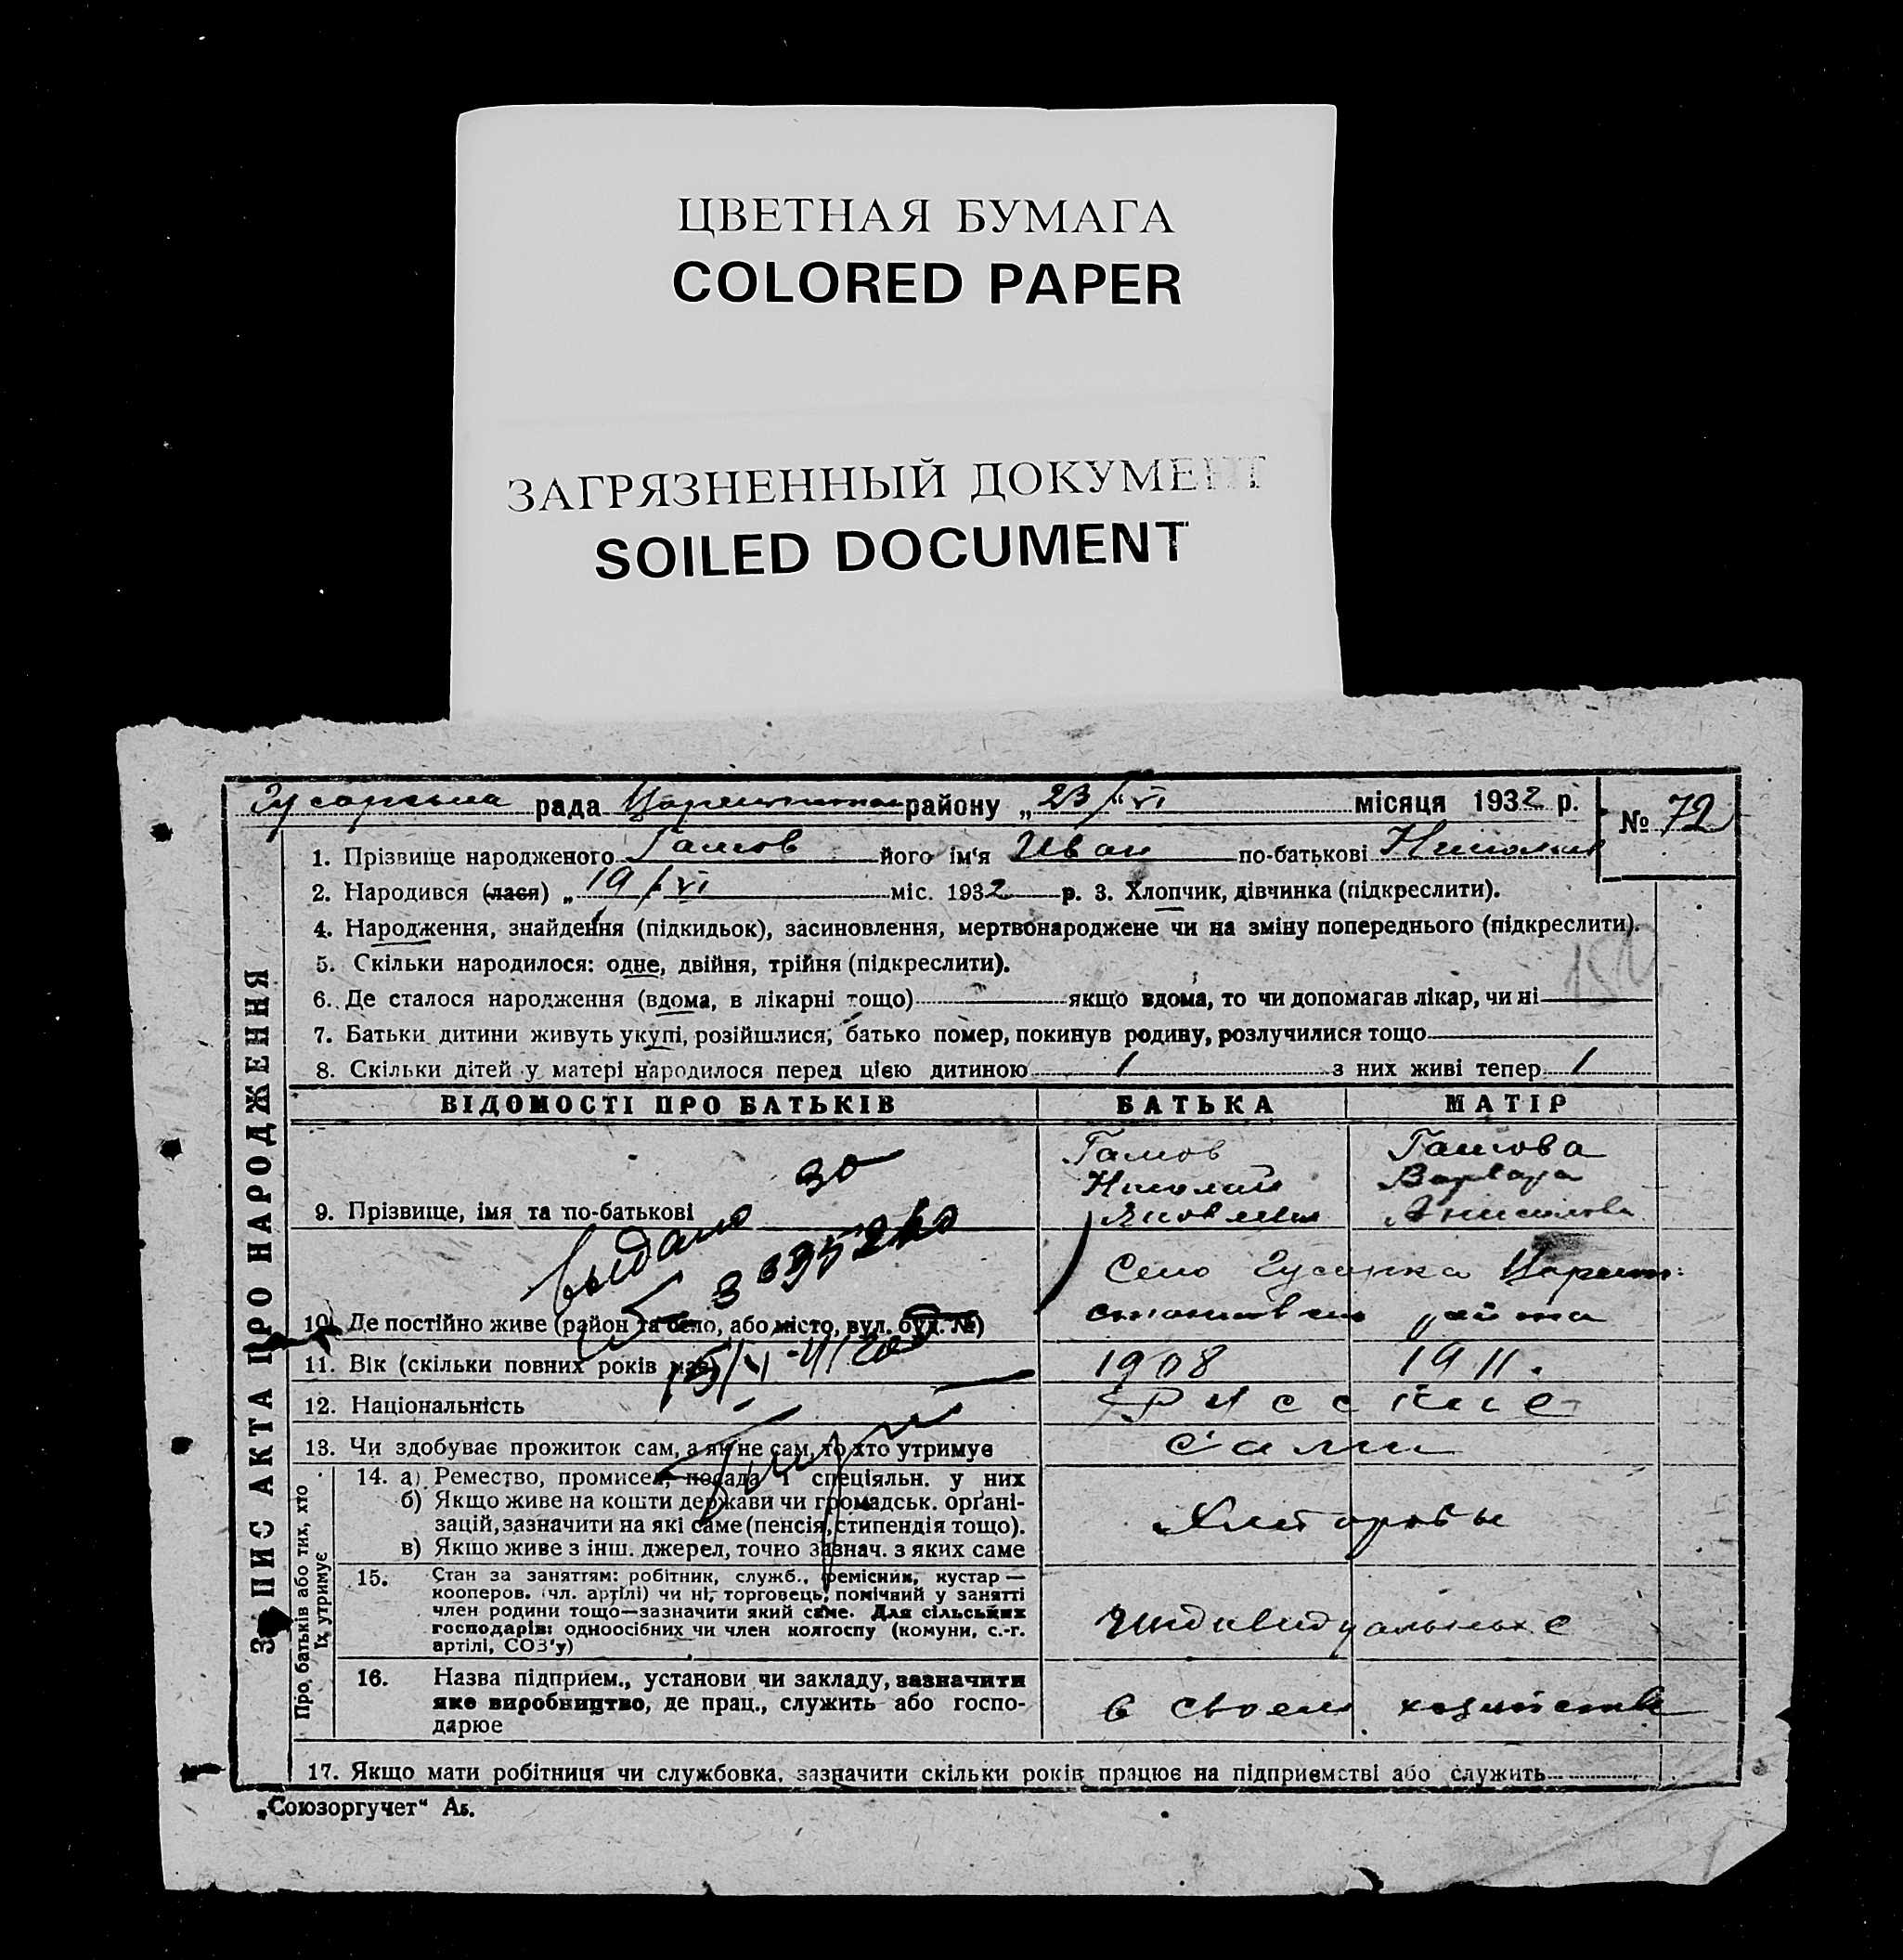 ЦВЕТНАЯ БУМАГА
COLORED PAPER
ЗАГРЯЗНЕННЫЙ ДОКУМЕНТ
SOILED DOCUMENT
рада району „23/VI“ місяця 1932 р.
№ 72
1. Прізвище народженого Гамов його ім‘я Иван по-батькові
2. Народився (лася) „19/VI міс. 1932 р. 3. Хлопчик, дівчинка (підкреслити).
4. Народження, знайдення (підкидьок), засиновлення, мертвонароджене чи на зміну попереднього (підкреслити).
5. Скільки народилося: одне, двійня, трійня (підкреслити).
6. Де сталося народження (вдома, в лікарні тощо) якщо вдома, то чи допомагав лікар, чи ні
7. Батьки дитини живуть укупі, розійшлися, батько помер, покинув родину, розлучилися тощо
8. Скільки дітей у матері народилося перед цією дитиною 1 з них живі тепер 1
ЗАПИС АКТА ПРО НАРОДЖЕННЯ
ВІДОМОСТІ ПРО БАТЬКІВ БАТЬКА МАТІР
Гамов Гамова
Николай Варвара
9. Прізвище, імя та по-батькові
выдано
Село Гусарка
10. Де постійно живе (район та село, або місто, вул. буд. №) района
11. Вік (скільки повних років має) 1908 1911.
12. Національність Русские
13. Чи здобуває прожиток сам, а як не сам, то хто утримує сами
Про батьків або тих, хто
їх утримує
14. а) Ремество, промисел, посада і спеціяльн. у них
б) Якщо живе на кошти держави чи громадськ. орґані-
зацій, зазначити на які саме (пенсія, стипендія тощо).
в) Якщо живе з інш. джерел, точно зазнач. з яких саме
Хлеборобы
15. Стан за заняттям: робітник, служб., ремісник, кустар —
кооперов. (чл. артілі) чи ні, торговець, помічний у занятті
член родини тощо—зазначити який саме. Для сільських
господарів: одноосібних чи член колгоспу (комуни, с.-г.
артілі, СОЗ'у)
Индивидуальные
16. Назва підприєм., установи чи закладу, зазначити
яке виробництво, де прац., служить або госпо-
дарює
в своем хозяйстве
17. Якщо мати робітниця чи службовка, зазначити скільки років працює на підприємстві або служить
„Союзоргучет“ Аб.